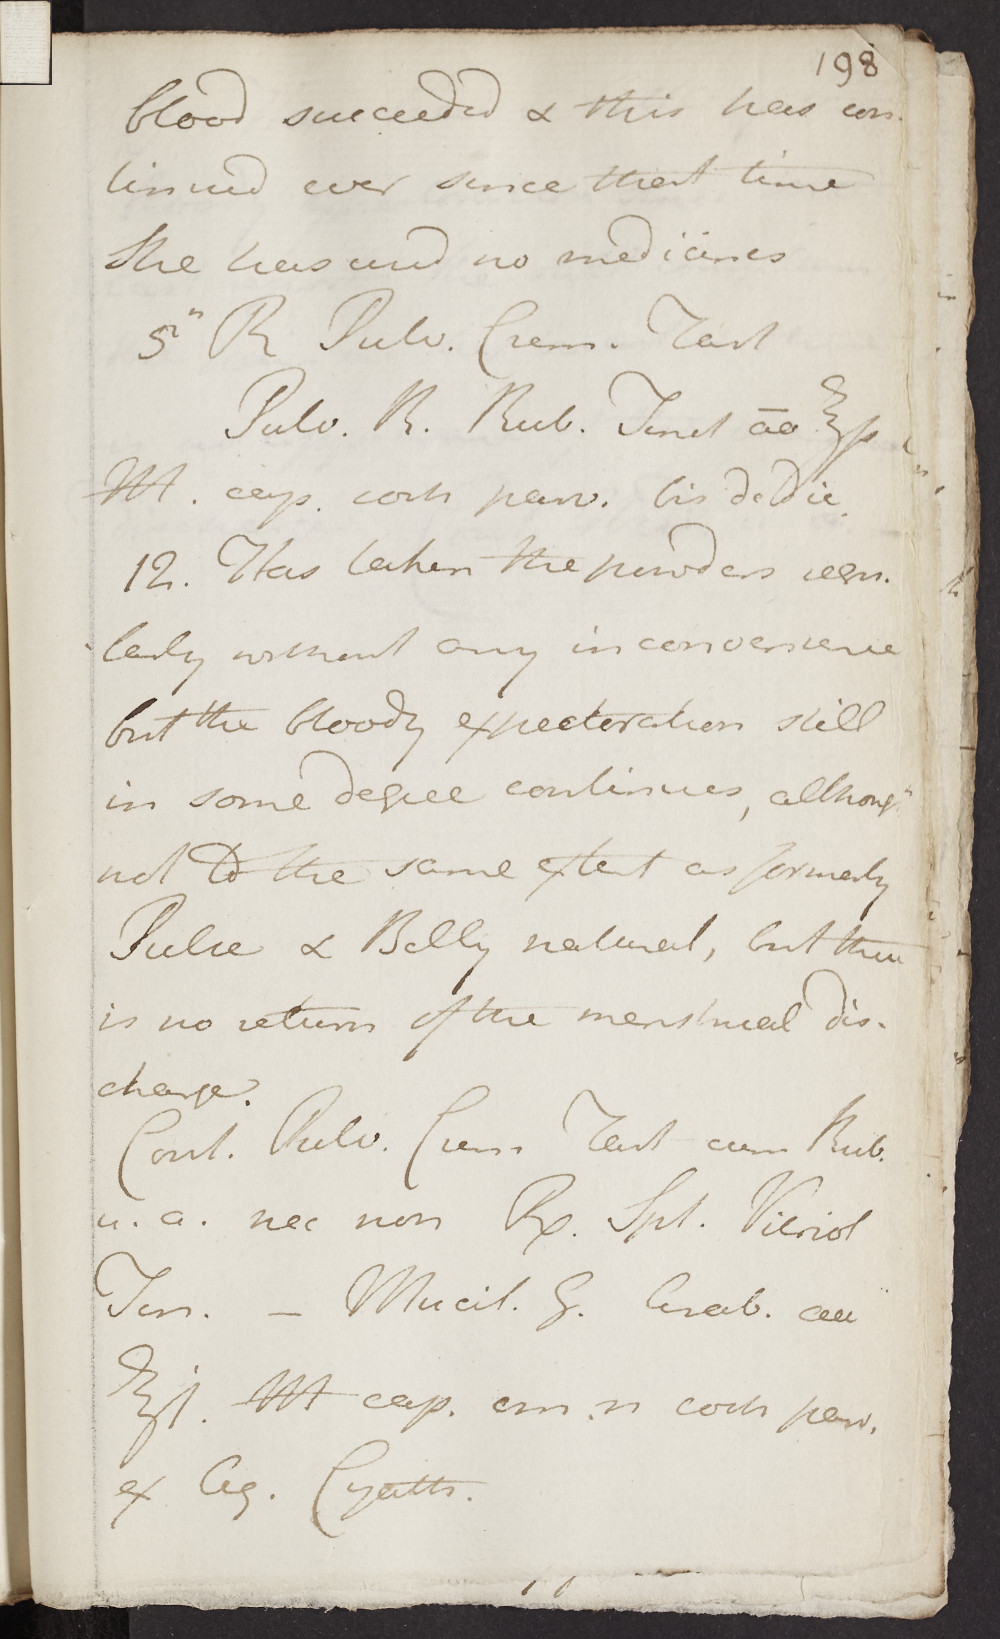 198
blood succeeded & this has con-
tinued ever since that time
She has used no medicines
5" R Pulv. Crem. Tart
Pulv. R. Rub. Tinct āā ℥ß
M. cap. coch parv. bis de die.
12. Has taken the powders regu.
larly without any inconvenience
but the bloody expectoration still
in some degree continues, althoug"
not to the same extent as formerly
Pulse & Belly natural, but there
is no return of the menstrual dis-
charge.
Cont. Pulv. Crem Tart cum Rub.
u. a. nec non Rx. Spt. Vitriol
Ten. — Mucil. G. Arab. aa
℥j. M cap. om. n coch parv.
ex Aq. Cyath.